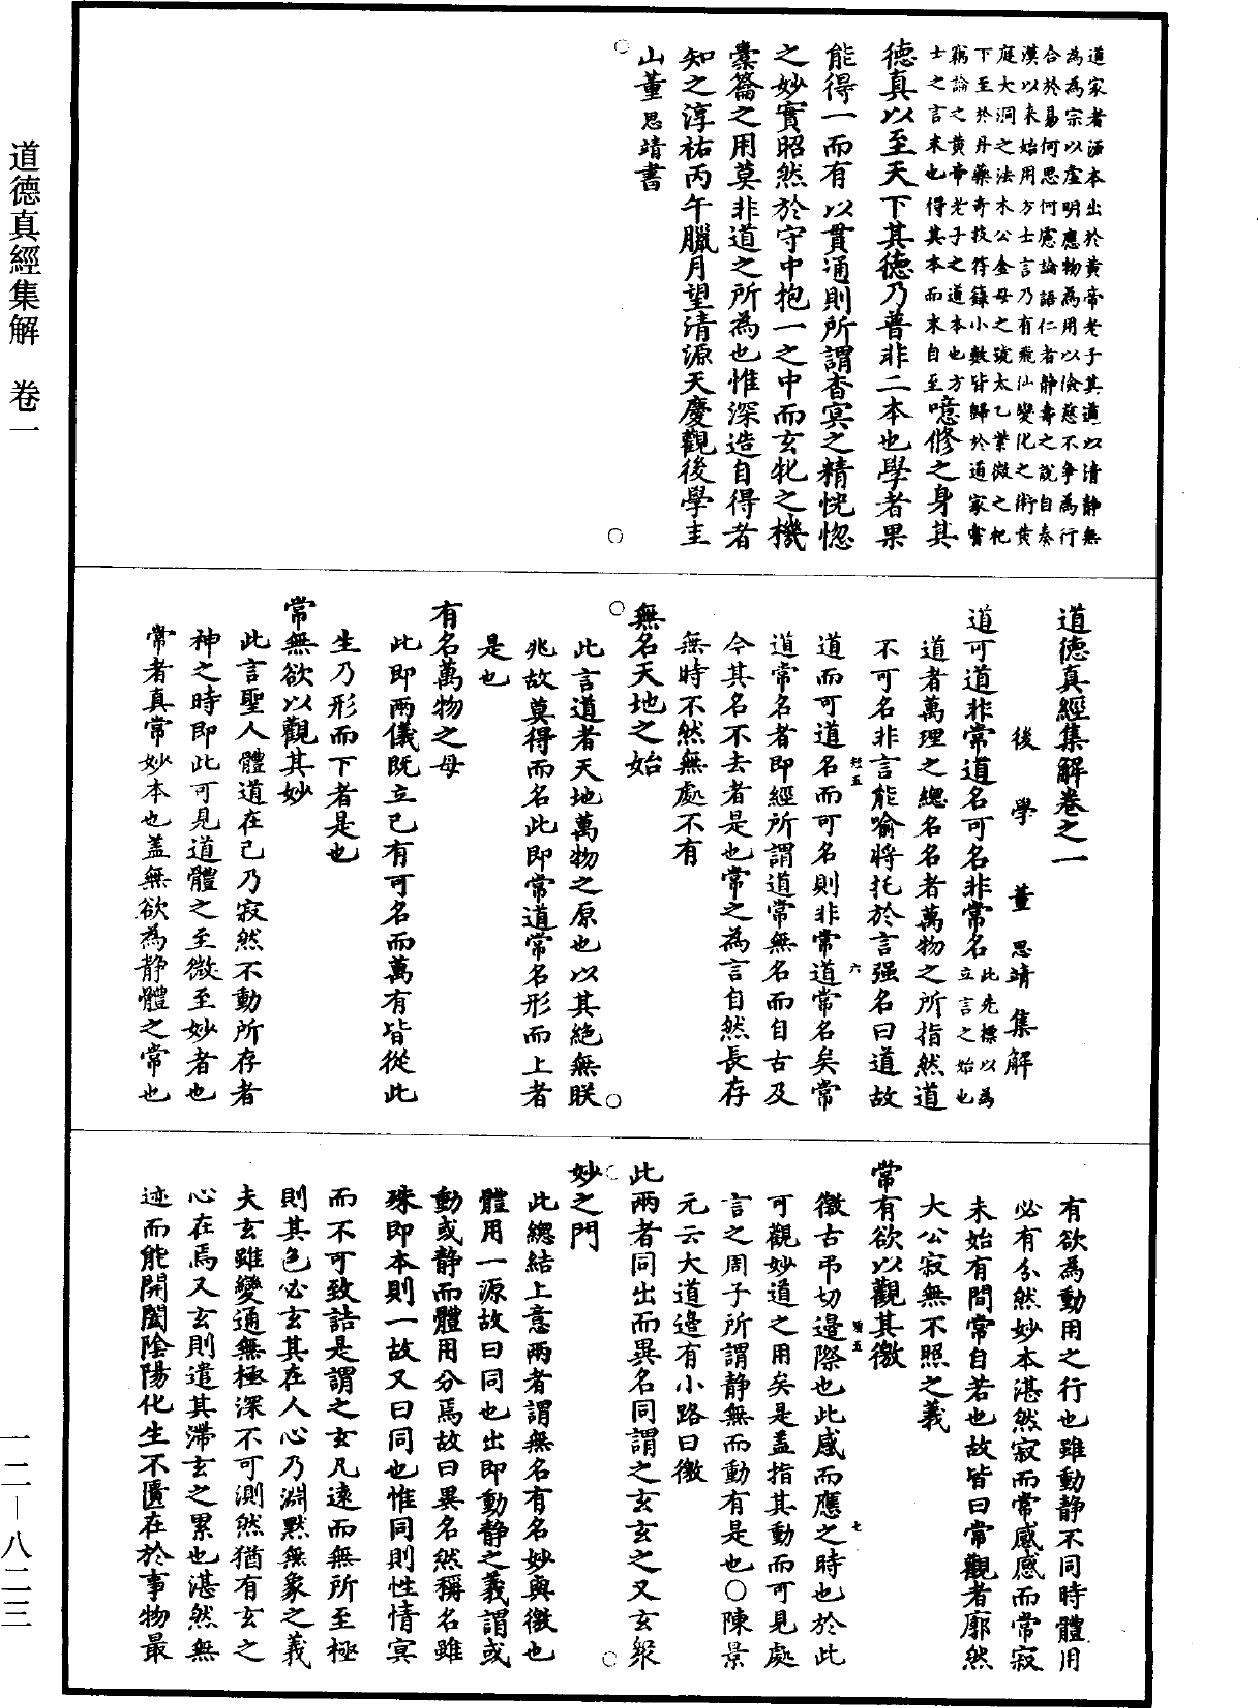 道德真經集解　卷一
道家者流本出於黄帝老子其道以清静無
為為宗以虚明應物為用以儉慈不争為行
合於易何思何慮論語仁者静壽之說自秦
漢以来始用方士言乃有飛仙變化之術黄
庭大洞之法木公金母之號太乙紫微之祀
下至於丹藥奇技符籙小數皆歸於道家嘗
竊論之黄帝老子之道本也方
士之言末也得其本而末自至噫修之身其
德真以至天下其德乃普非二本也學者果
能得一而有以貫通則所謂杳冥之精恍惚
之妙實昭然於守中抱一之中而玄牝之機
橐籥之用莫非道之所為也惟深造自得者
知之淳祐丙午臘月望清源天慶觀後學圭
山董思靖書
道德真經集解卷之一
後學董思靖集解
道可道非常道名可名非常名此先標以為
立言之始也
道者萬理之總名名者萬物之所指然道
不可名非言能喻將托於言强名曰道故
道而可道名而可名則非常道常名矣常
短五　六
道常名者即經所謂道常無名而自古及
今其名不去者是也常之為言自然長存
無時不然無處不有
無名天地之始
此言道者天地萬物之原也以其絶無朕
兆故莫得而名此即常道常名形而上者
是也
有名萬物之母
此即兩儀既立已有可名而萬有皆從此
生乃形而下者是也
常無欲以觀其妙
此言聖人體道在己乃寂然不動所存者
神之時即此可見道體之至微至妙者也
常者真常妙本也盖無欲為静體之常也
有欲為動用之行也雖動静不同時體用
必有分然妙本湛然寂而常感感而常寂
未始有間常自若也故皆曰常觀者廓然
大公寂無不照之義
常有欲以觀其徼
徼古弔切邊際也此感而應之時也於此
五　七
可觀妙道之用矣是盖指其動而可見處
言之周子所謂静無而動有是也○陳景
元云大道邊有小路曰徼
此兩者同出而異名同謂之玄玄之又玄衆
妙之門
此總結上意兩者謂無名有名妙與徼也
體用一源故曰同也出即動静之義謂或
動或静而體用分焉故曰異名然稱名雖
殊即本則一故又曰同也惟同則性情冥
而不可致詰是謂之玄凡遠而無所至極
則其色必玄其在人心乃淵默無象之義
夫玄雖變通無極深不可測然猶有玄之
心在焉又玄則遣其滯玄之累也湛然無
迹而能開闔陰陽化生不匱在於事物最
一二—八二三